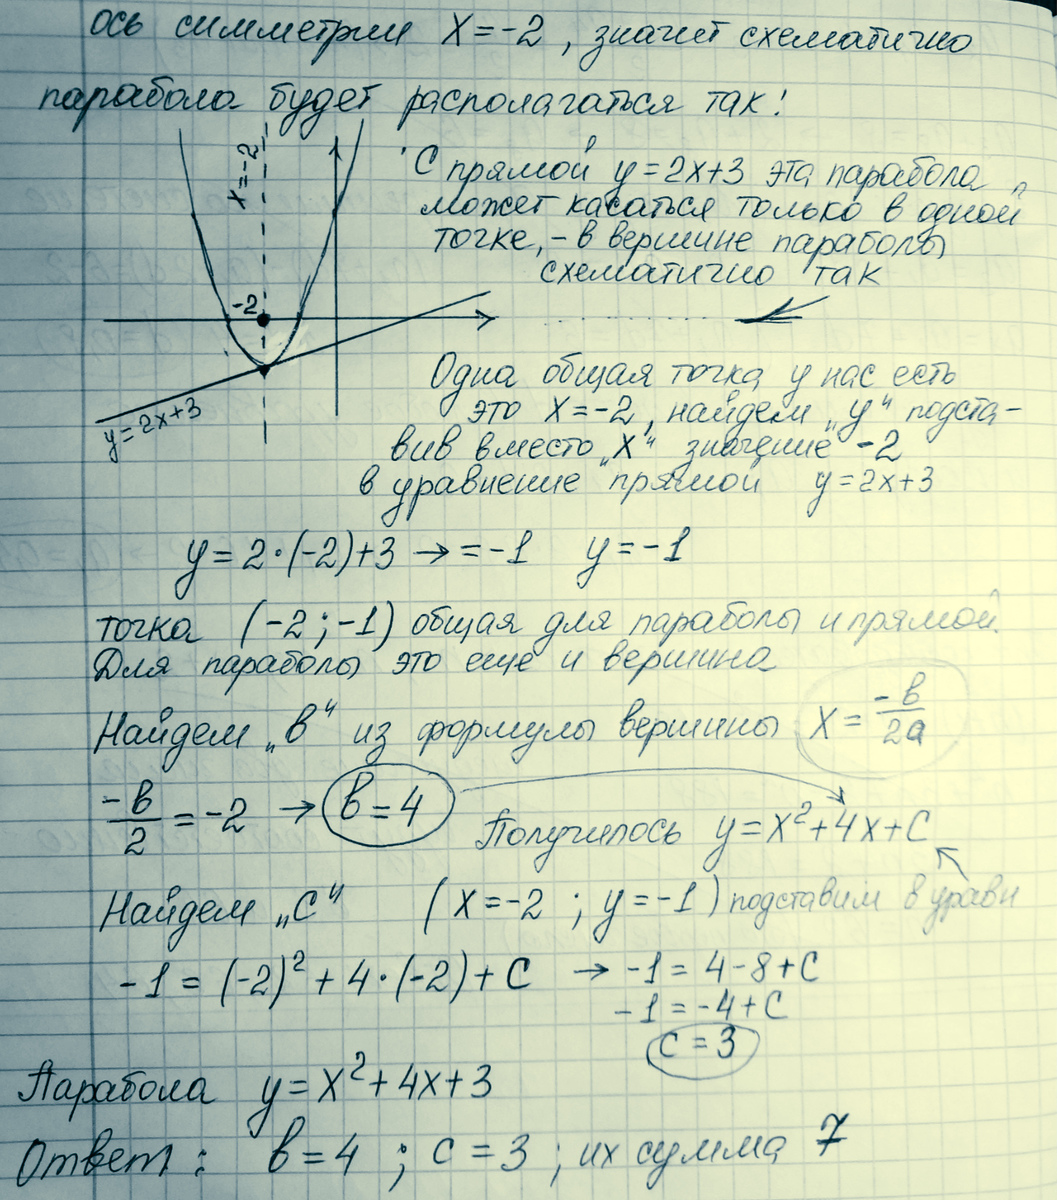 ось симметрии X=-2, значит схематично
парабола будет располагаться так!
x=-2
С прямой y=2x+3 эта парабола
может касаться только в одной
точке, - в вершине параболы
схематично так
-2
y=2x+3
Одна общая точка у нас есть
это X=-2, найдем „y“ подста-
вив вместо „X“ значение -2
в уравнение прямой y=2x+3
y=2·(-2)+3 → =-1 y=-1
точка (-2;-1) общая для параболы и прямой.
Для параболы это еще и вершина
Найдем „в“ из формулы вершины X=-в/2a
-в/2=-2 → в=4
Получилось y=x²+4x+C
Найдем „C“ (x=-2; y=-1) подставим в уравн
-1=(-2)²+4·(-2)+C → -1=4-8+C
-1=-4+C
c=3
Парабола y=x²+4x+3
Ответ: в=4; c=3; их сумма 7